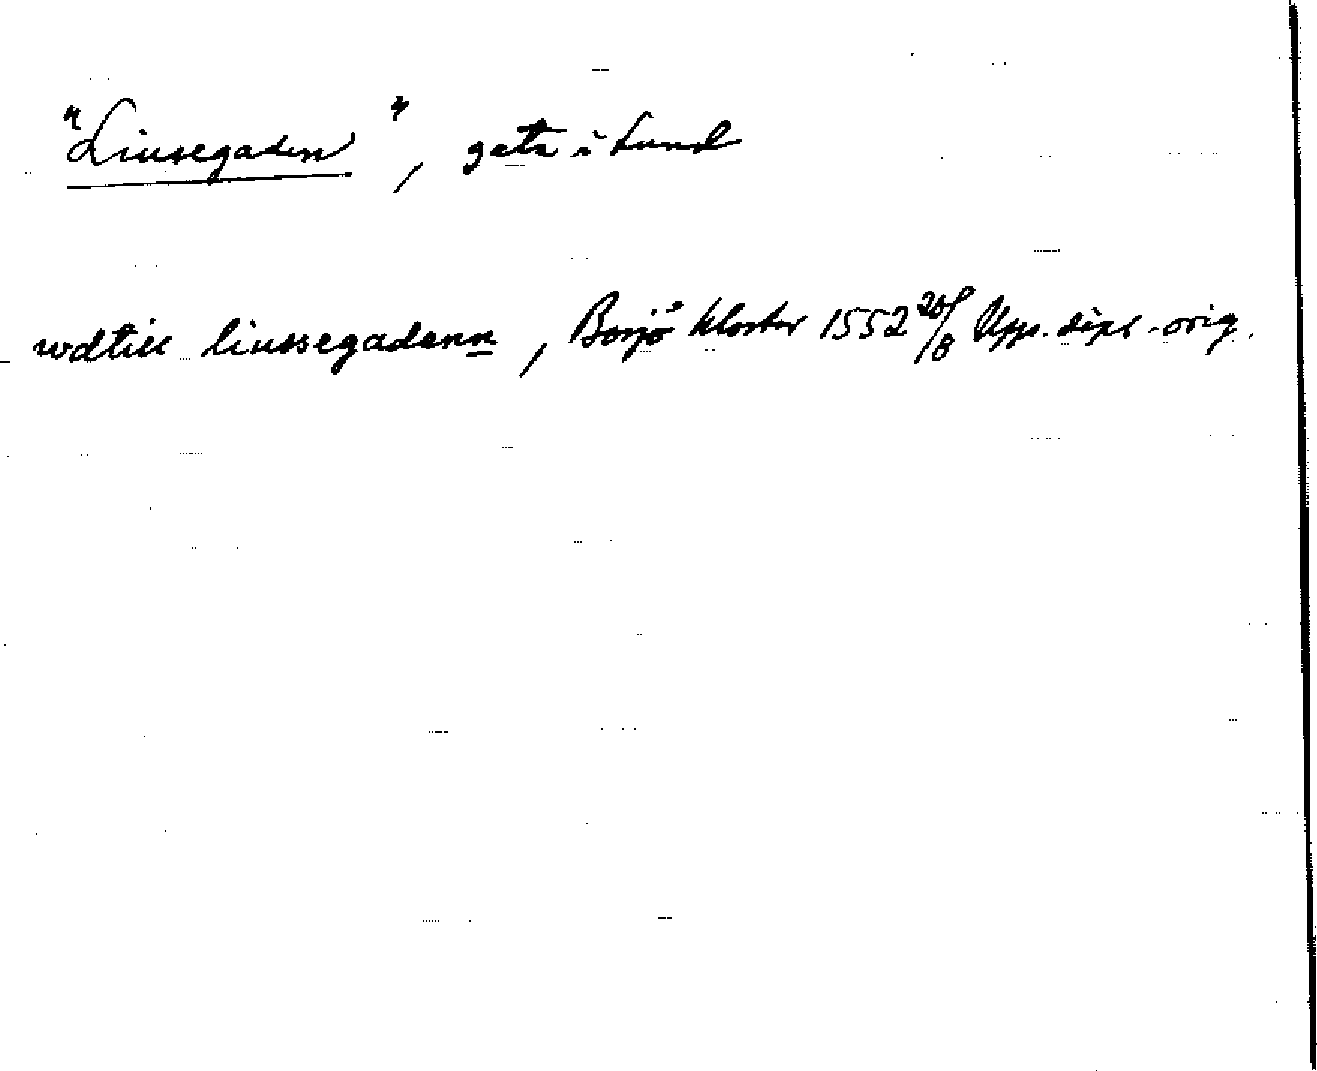 "Liusegaden", gata i Lund
wdtill liussegadenn, Bosjö kloster 1552 26/8 Upps. dipl. orig.